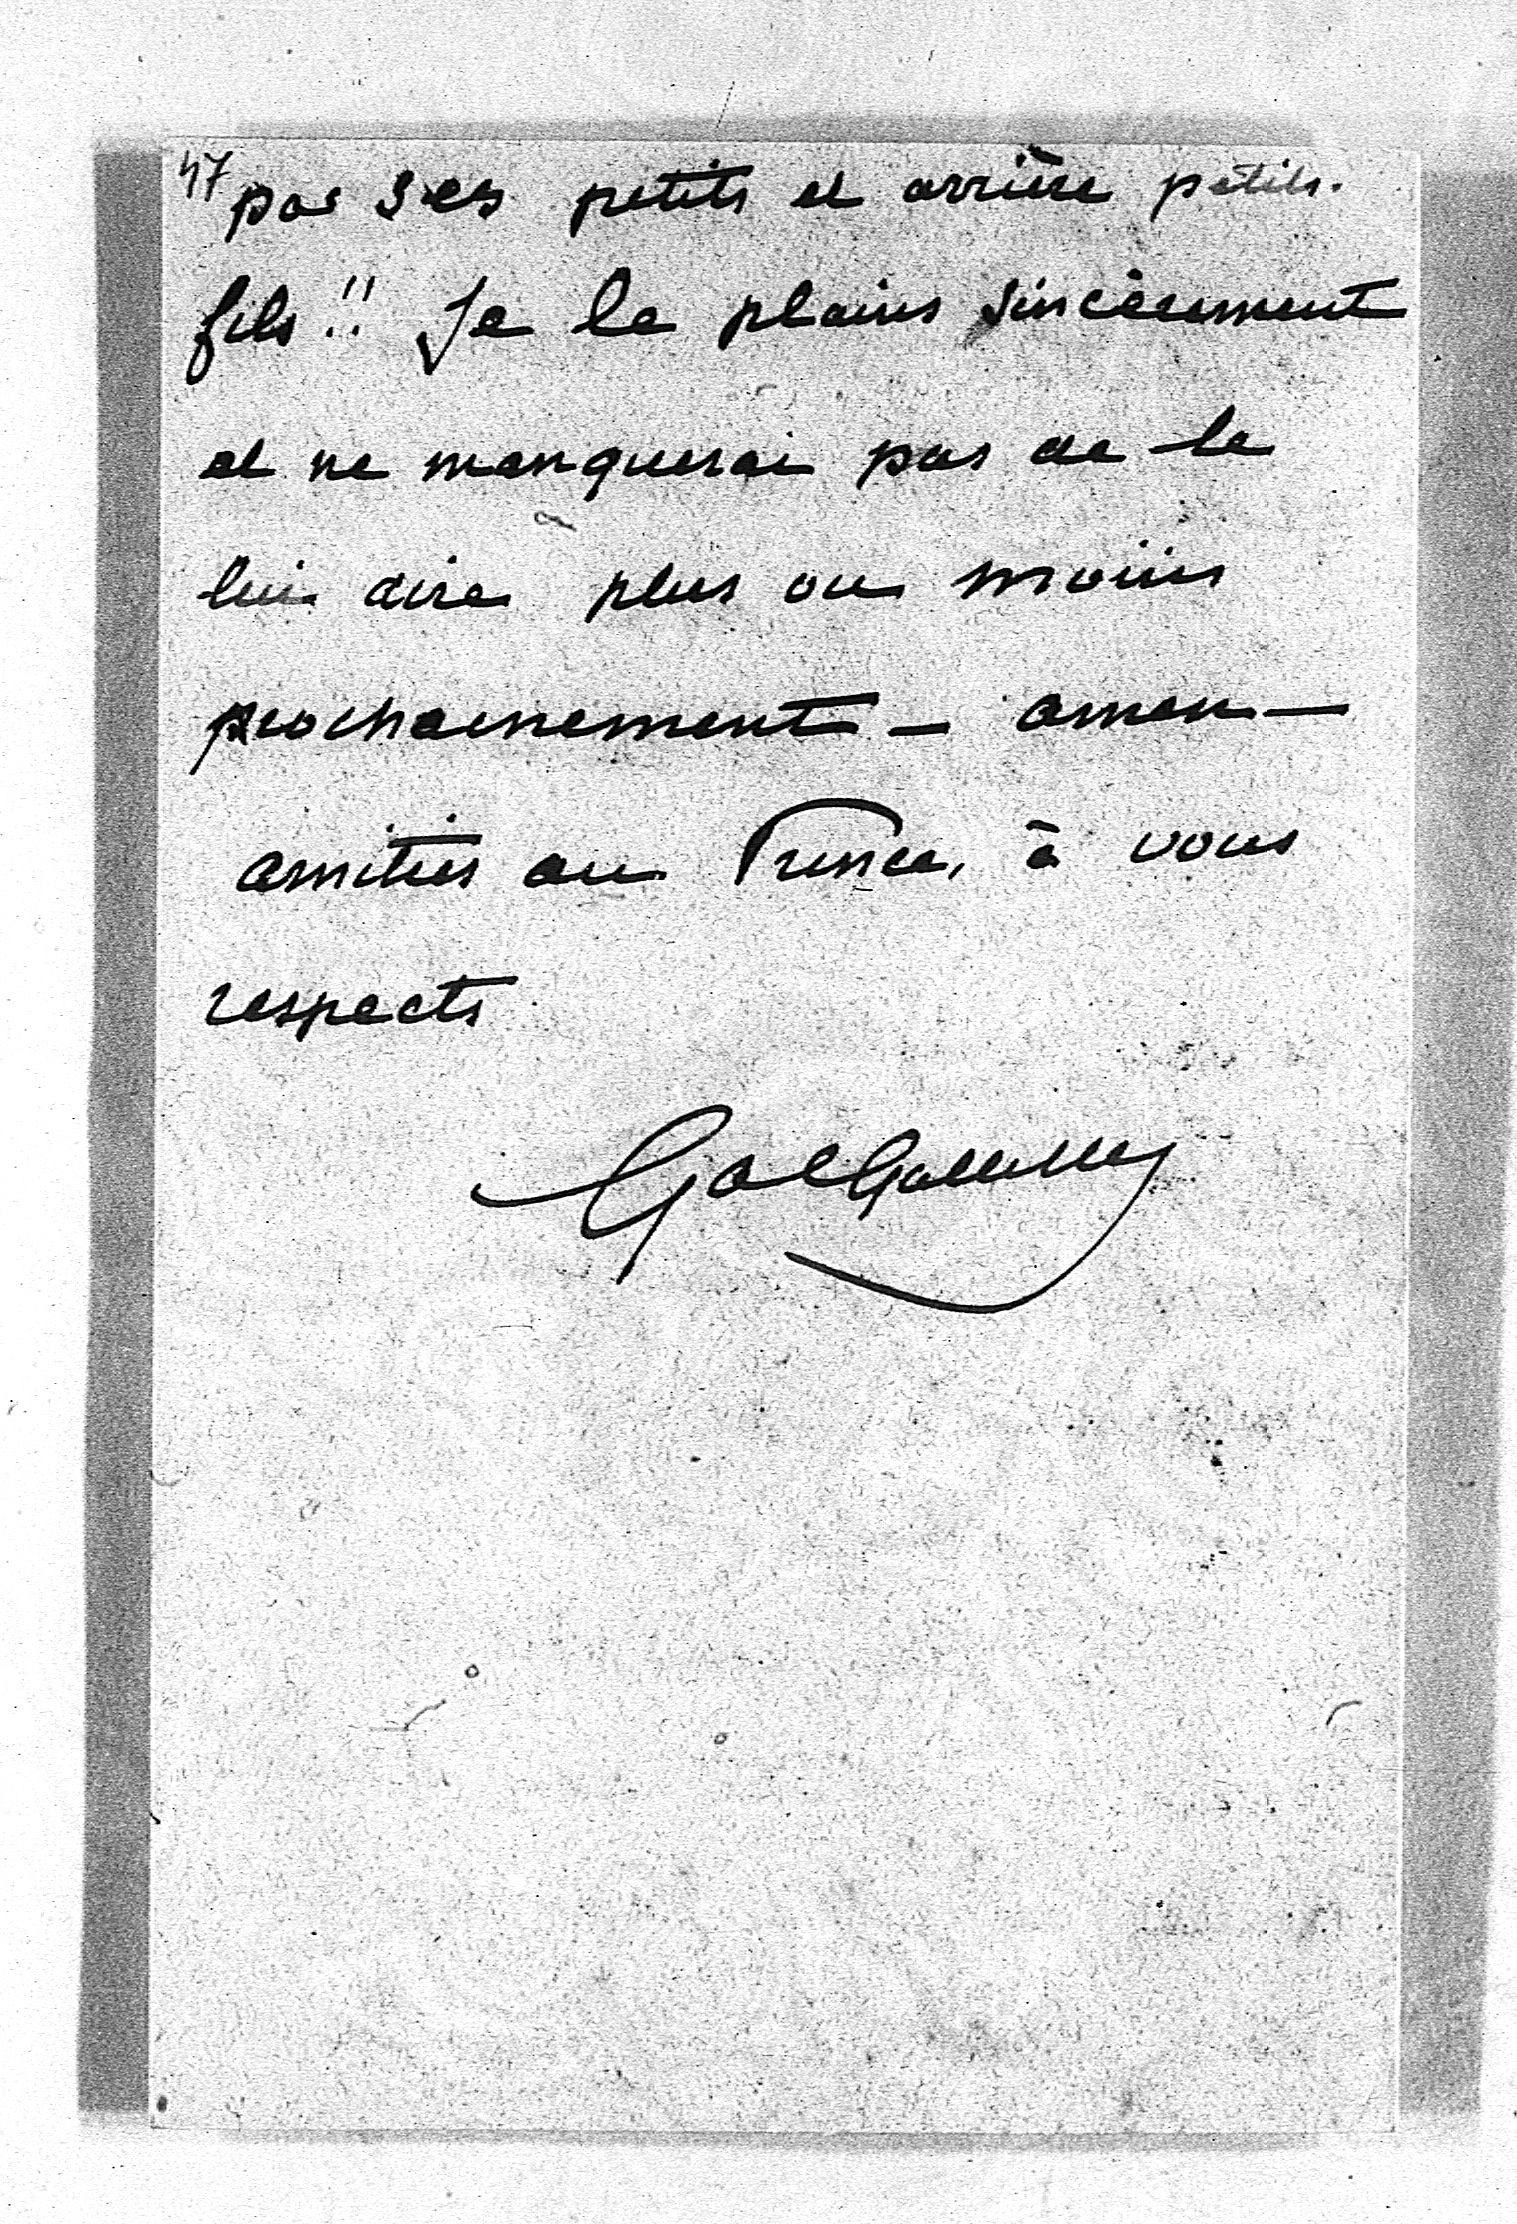 47 par ses petits et arrière petits-
fils !! Je le plains sincèrement
et ne manquerai pas de le
lui dire plus ou moins
prochainement – amen –
amitiés au Prince, à vous
respects
Gal Galliffet